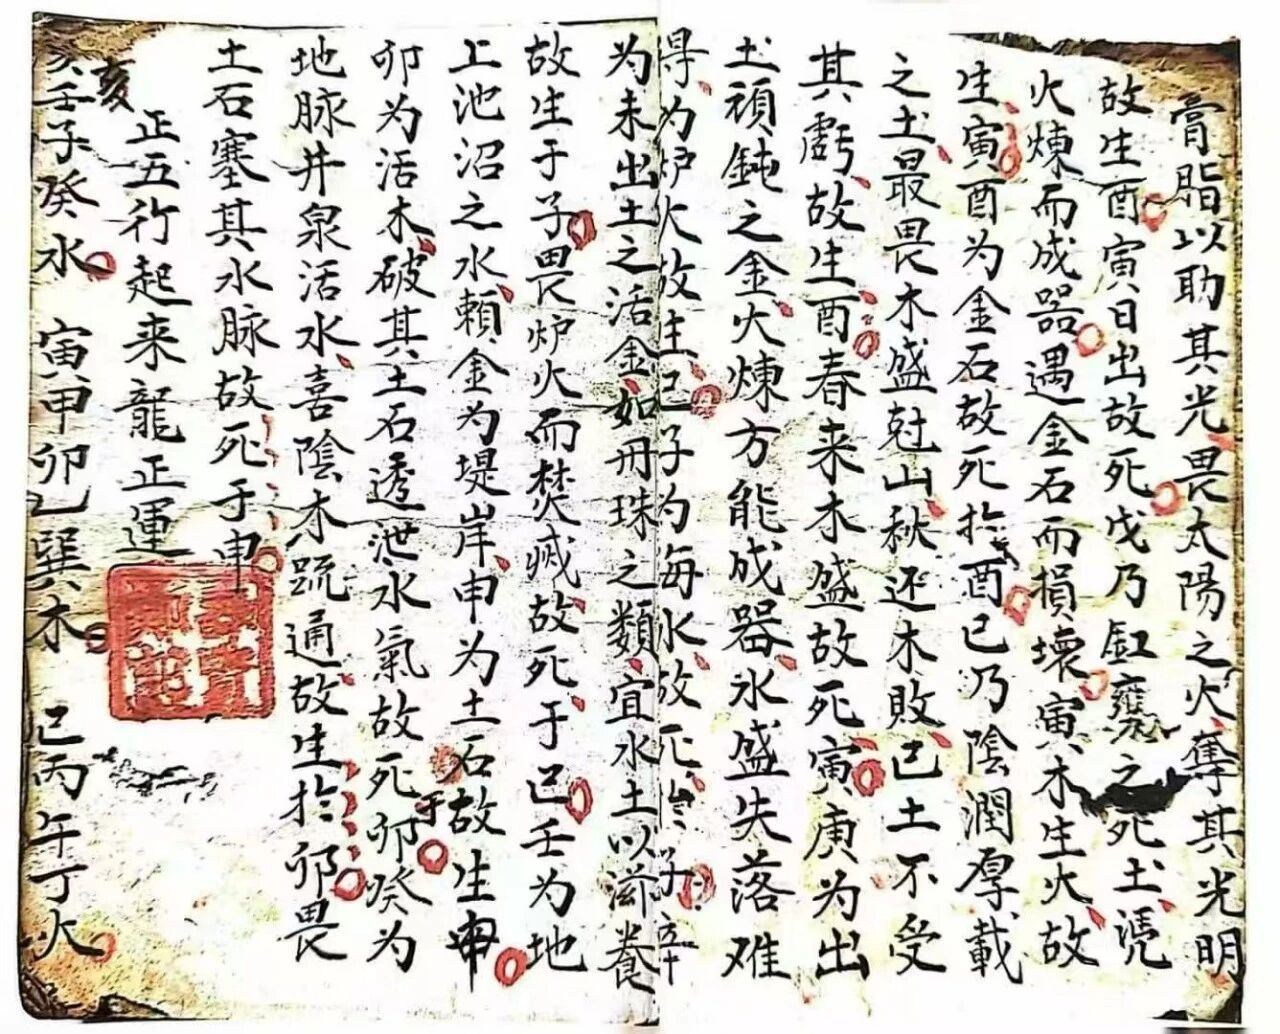 膏脂以助其光畏太陽之火奪其光明
故生酉寅日出故死戊乃缸甕之死土凴
火煉而成器遇金石而損壞寅木生火故
生寅酉為金石故死扵酉已乃陰潤厚載
之土最畏木盛尅山秋还木敗已土不受
其虧故生酉春来木盛故死寅庚为出
土頑鈍之金火煉方能成器水盛失落难
得为炉火故生已子为海水故死扵子辛
为未出土之活金如丹珠之類宜水土以滋養
故生于子畏炉火而焚滅故死于已壬为地
上池沼之水賴金为堤岸申为土石故生于申
卯为活木破其土石透泄水氣故死卯癸为
地脉井泉活水喜陰木疏通故生扵卯畏
土石塞其水脉故死于申
正五行起来龍正運
亥壬子癸水 寅甲卯乙巽木 巳丙午丁火
亥